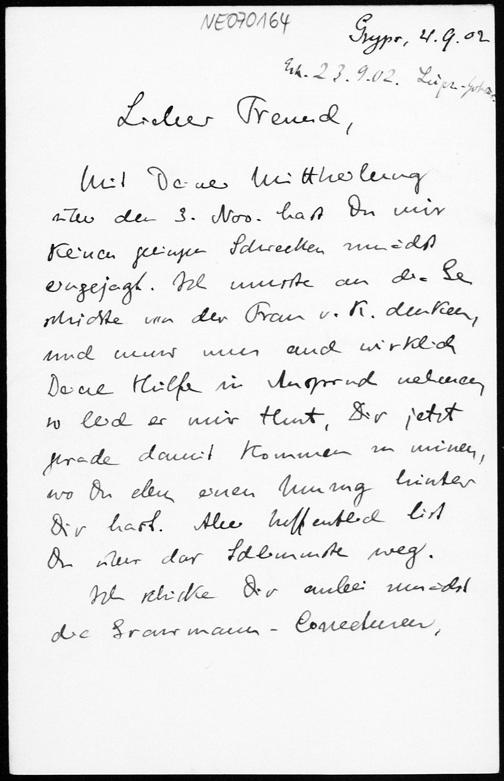 NE070164
Gryps, 4.9.02
Erh. 23.9.02.
Lieber Freund,
Mit Deiner Mittheilung
über den 3. Nov. hast Du mir
keinen geringen Schrecken zunächst
eingejagt. Ich musste an die Ge
schichte von der Frau v. K. denken,
und muss nun auch wirklich
Deine Hilfe in Anspruch nehmen
so leid es mir thut, Dir jetzt
gerade damit kommen zu müssen,
wo Du eben einen Umzug hinter
Dir hast. Aber hoffentlich bist
Du über das Schlimmste weg.
Ich schicke Dir anbei zunächst
die Grassmann-Correcturen,